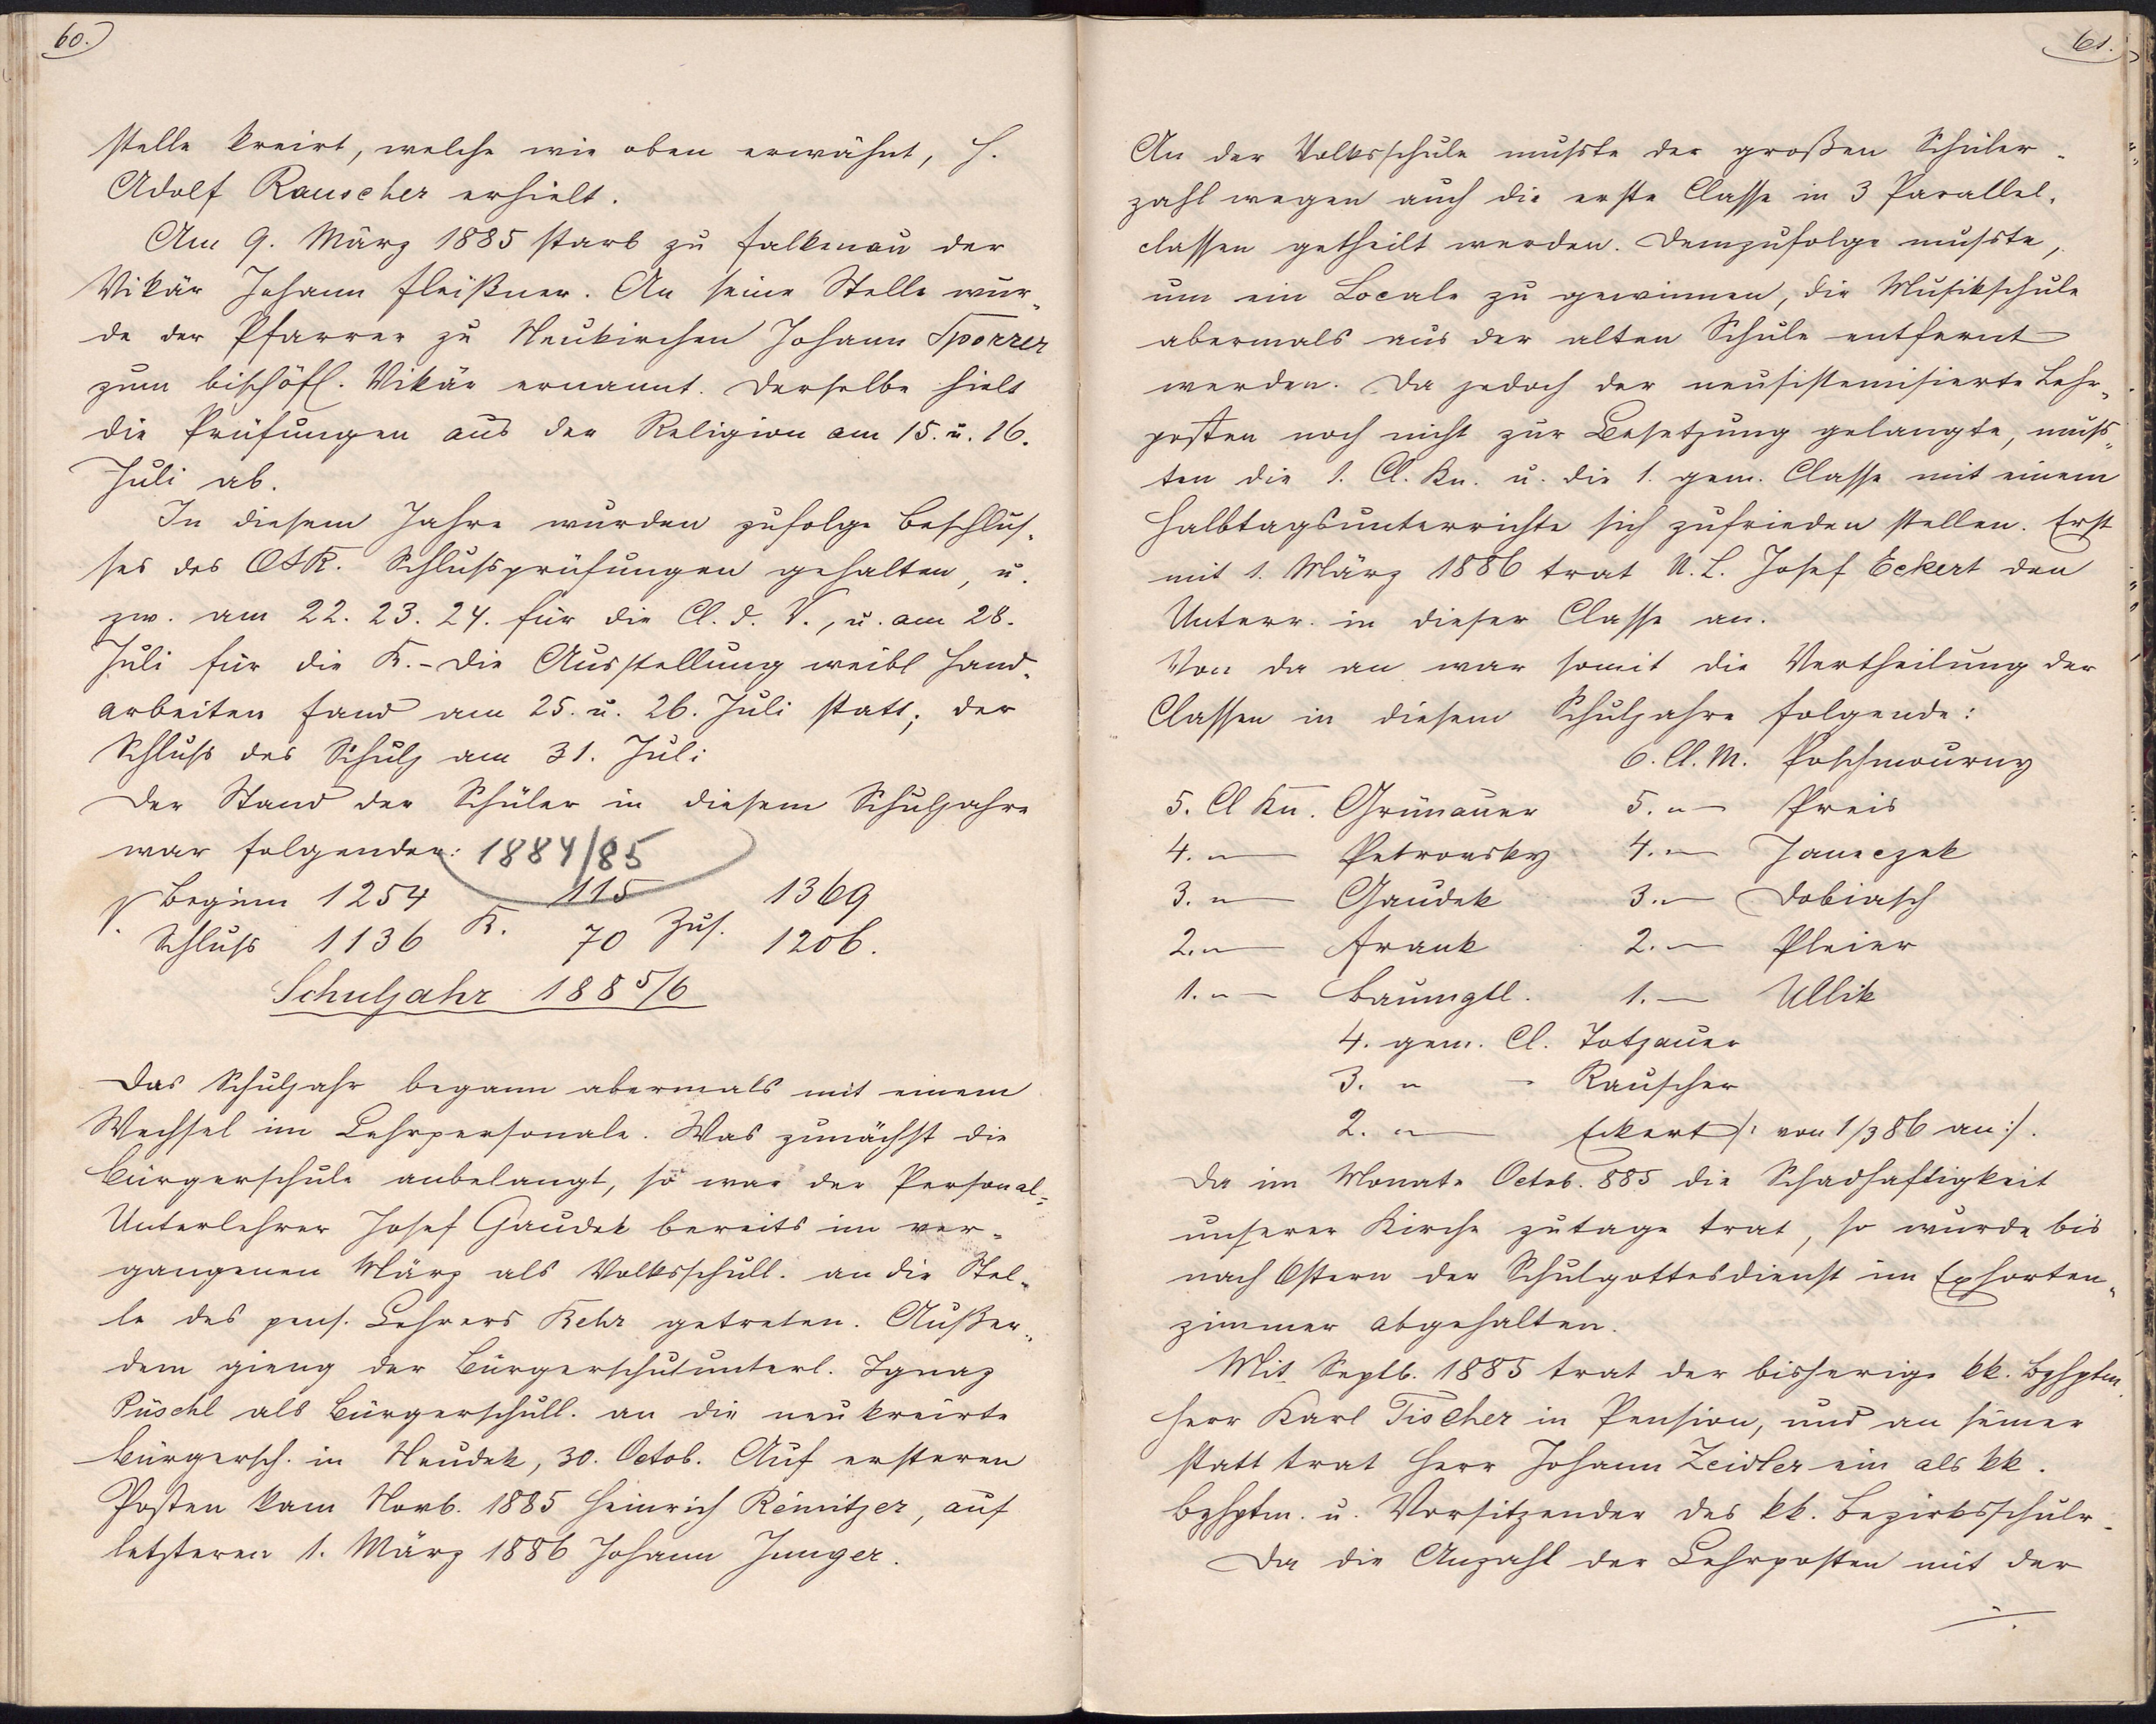 60.
stelle kreirt, welche wie oben erwähnt, H.
Adolf Rauscher erhielt.
Am 9. März 1885 starb zu Falkenau der
Vikär Johann Fleißner. An seine Stelle wur-
de der Pfarrer zu Neukirchen Johann Sporrer
zum bischöfl. Vikär ernannt. Derselbe hielt
die Prüfungen aus der Religion am 15. u. 16.
Juli ab.
In diesem Jahre wurden zufolge Beschlus-
ses des OSR. Schlußprüfungen gehalten, u.
zw. am 22. 23. 24. für die Cl. d. V., u. am 28.
Juli für die K. - Die Ausstellung weibl Hand-
arbeiten fand am 25. u. 26. Juli statt; der
Schluß des Schulj am 31. Juli
Der Stand der Schüler in diesem Schuljahre
war folgender: 1884/85
V. Beginn 1254 K. 115 Zus. 1369
Schluß 1136 70 1206.
Schuljahr 1885/6
Das Schuljahr begann abermals mit einem
Wechsel im Lehrpersonale. Was zunächst die
Bürgerschule anbelangt, so war der Personal-
Unterlehrer Josef Gaudek bereits im ver-
gangenen März als Volksschull. an die Stel-
le des pens. Lehrers Kehr getreten. Außer-
dem gieng der Bürgerschulunterl. Ignaz
Püschl als Bürgerschull. an die neukreirte
Bürgersch. in Neudek, 30. Octob. Auf ersteren
Posten kam Novb. 1885 Heinrich Reinitzer, auf
letzteren 1. März 1886 Johann Junger.
61.
An der Volksschule mußte der großen Schüler-
zahl wegen auch die erste Classe in 3 Parallel-
classen getheilt werden. Demzufolge mußte,
um ein Locale zu gewinnen, die Musikschule
abermals aus der alten Schule entfernt
werden. Da jedoch der neusistemisierte Lehr-
posten noch nicht zur Besetzung gelangte, muß-
ten die 1. Cl. Kn. u. die 1. gem. Classe mit einem
Halbtagsunterrichte sich zufrieden stellen. Erst
mit 1. März 1886 trat U. L. Josef Eckert den
Unterr. in dieser Classe an.
Von da an war somit die Vertheilung der
Classen in diesem Schuljahre folgende:
6. Cl. M. Poschmourny
5. Cl Kn. Grünauer 5. " — Preis
4. " — Petrovsky 4. " — Janeczek
3. " — Gaudek 3. " — Dobiasch
2. " — Frank 2. — Pleier
1. " — Baumgtl. 1. — Ullik
4. gem. Cl. Totzauer
3. " - Rauscher
2. " — Eckert /: von 1/3 86 an :/.
Da im Monate Octob. 885 die Schadhaftigkeit
unserer Kirche zutage trat, so wurde bis
nach Ostern der Schulgottesdienst im Exhorten-
zimmer abgehalten.
Mit Septb. 1885 trat der bisherige kk. Bzhptm.
Herr Karl Tischer in Pension, und an seiner
statt trat Herr Johann Zeidler ein als kk.
Bzhptm. u. Vorsitzender des kk. Bezirksschulr.
Da die Anzahl der Lehrposten mit der
./.